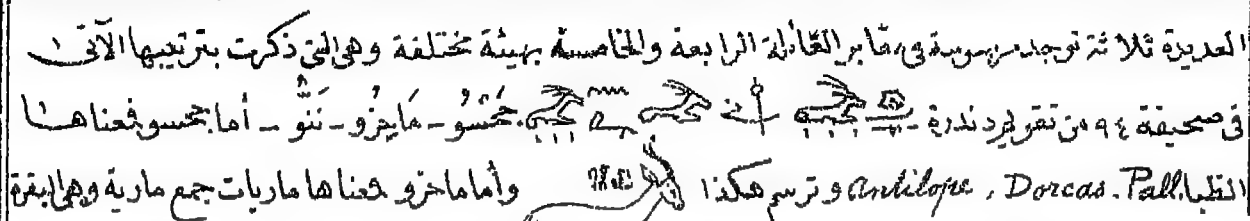 العديدة ثلاثة توجد مرسومة فى مقابر العائلة الرابعة والخامسة بهيئة مختلفة وهى التى ذكرت بترتيبها الآتى
فى صحيفة ٩٤ من تقويم دندرة - جَحْسُو - مَايحزُو - نَنُّو - أما جحسو فمعناها
الظبا Antilope, Dorcas. Pall وترسم هكذا وأما ماحزو فمعناها ماريات جمع مارية وهى البقرة